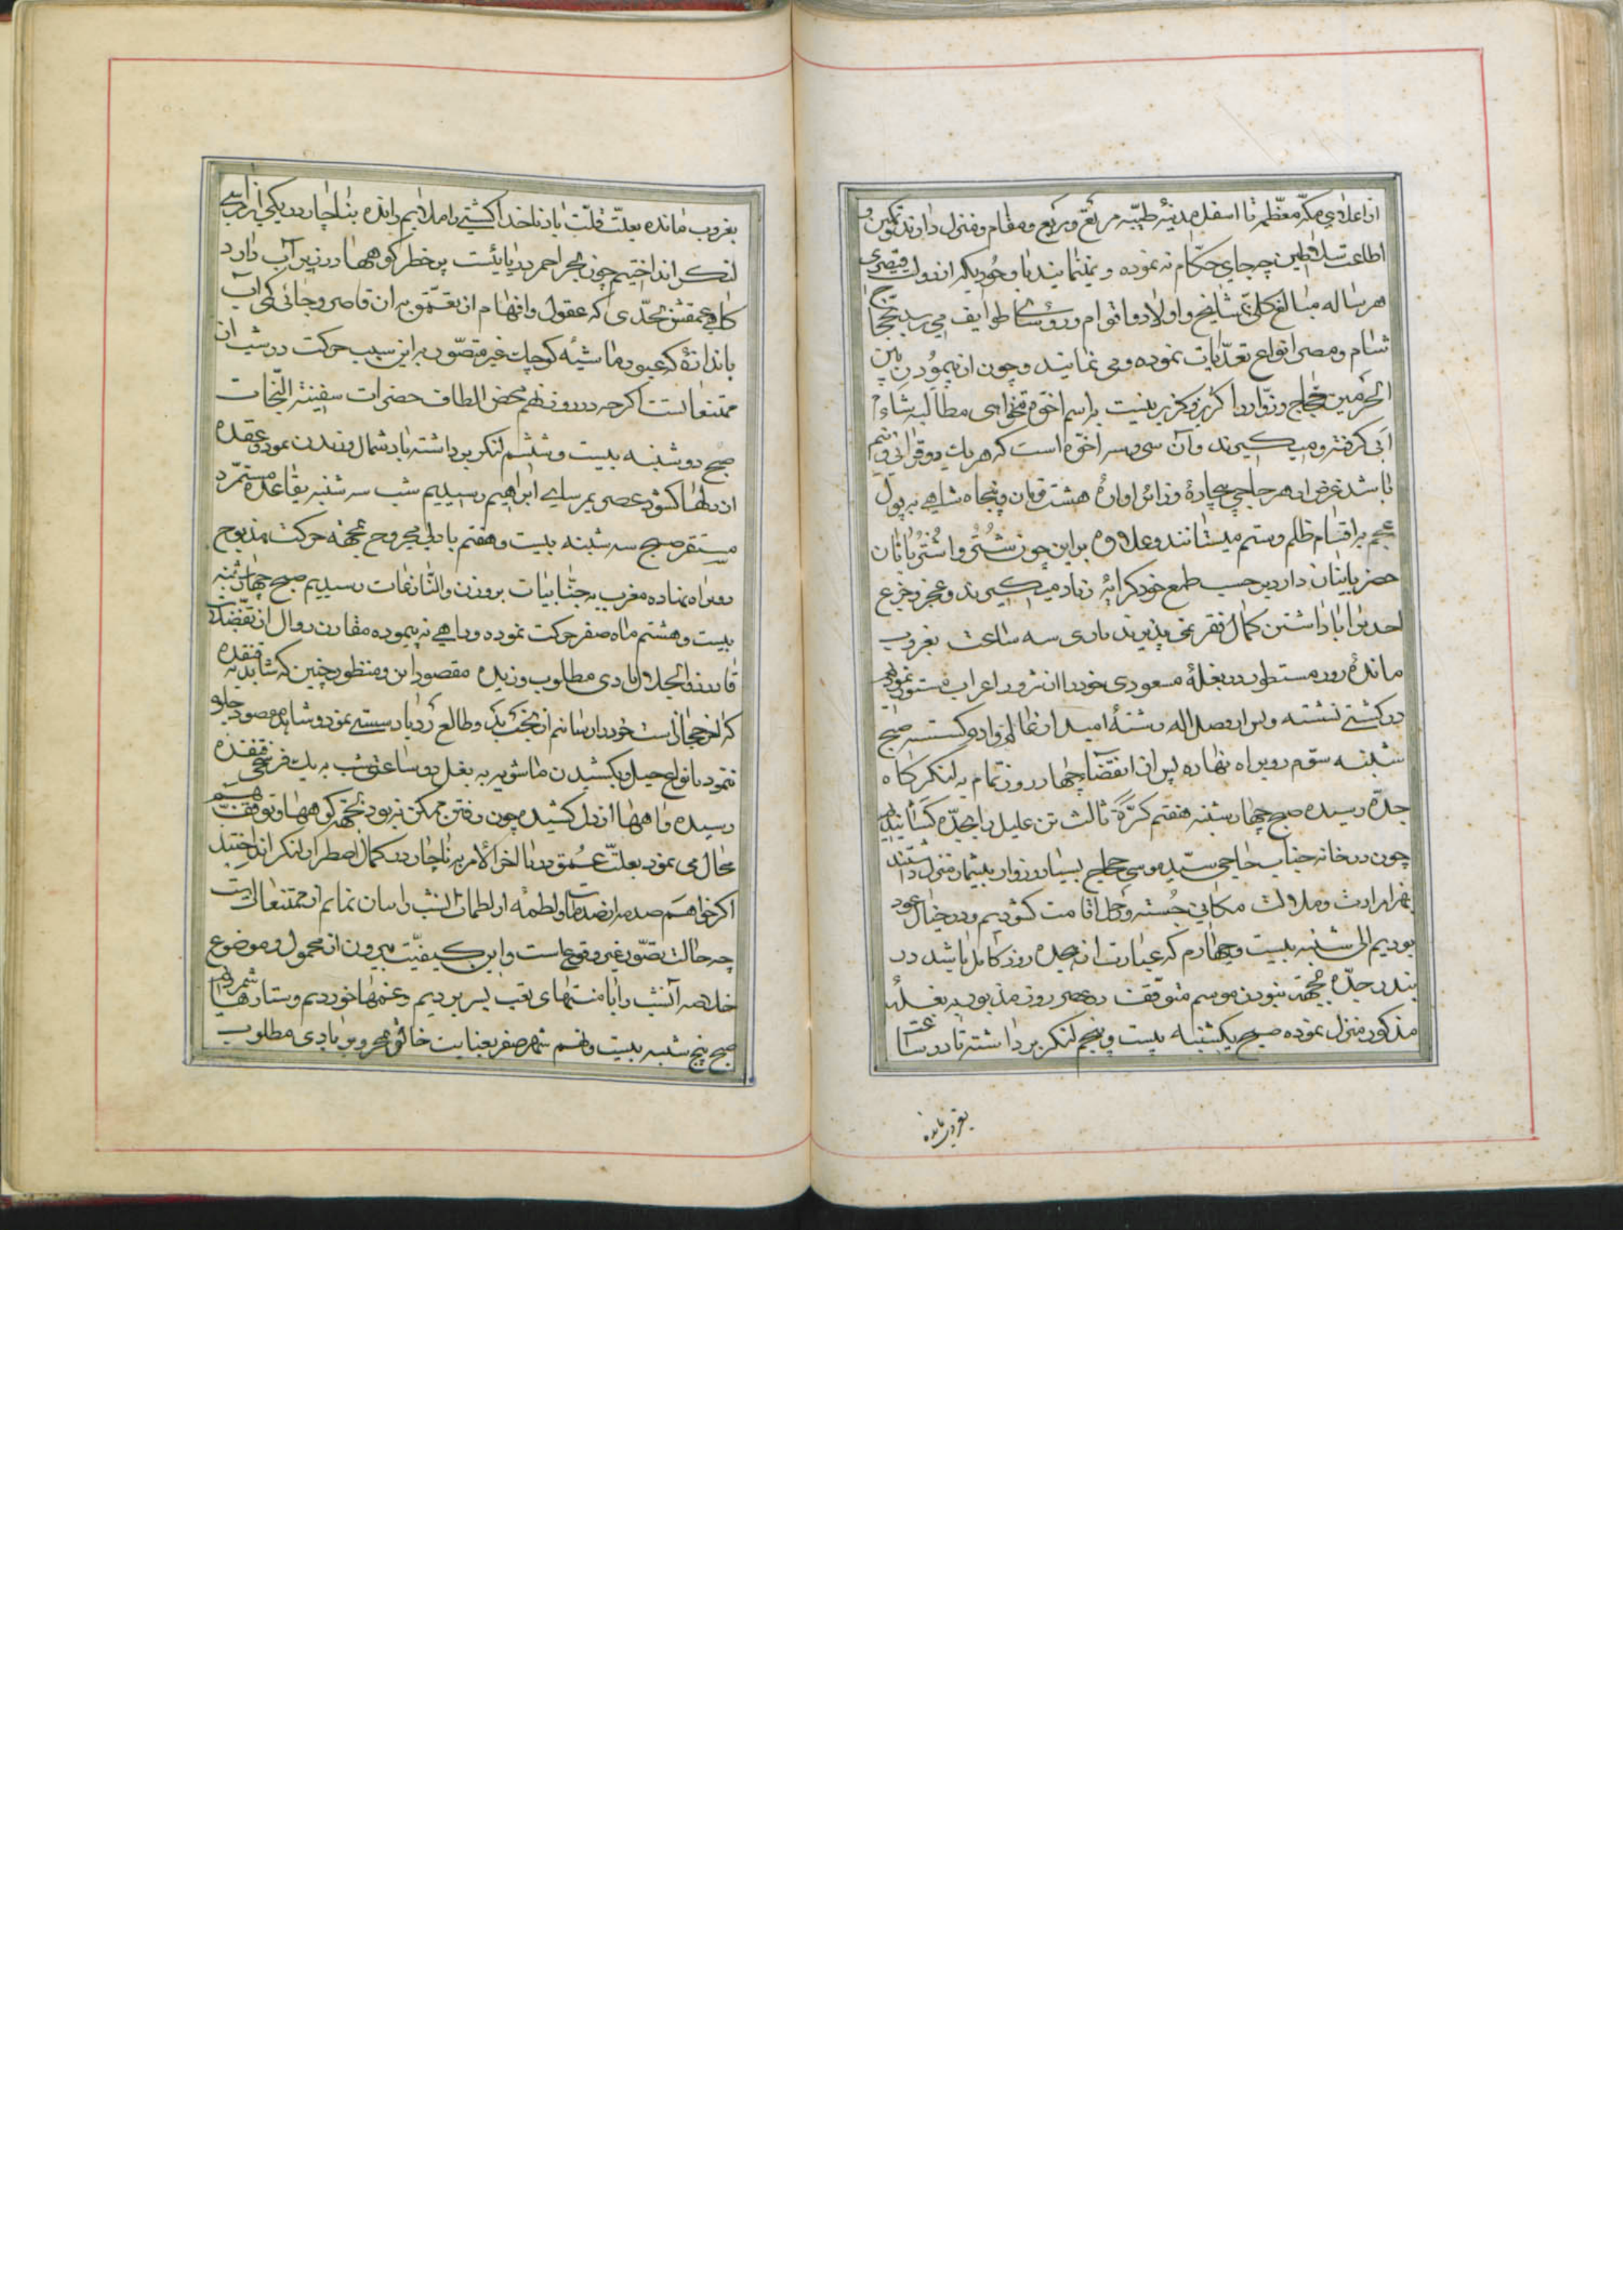 از اعلای مکّه معظّمه تا اسفل مدینهٔ طیّبه مرتع و مربع و مقام و منزل دارند تمکین و
اطاعت سلاطین چه جای حکّام نه نموده و نمینمایند با وجودیکه از دولت قیصری
هر ساله مبالغ کلّی بمشایخ و اولاد و اقوام و رؤسای طوایف میرسد بحجّاج
شام و مصر انواع تعدّیات نموده و می نمایند و چون از پیمودن بین
الحرمین حجّاج و زوّار را گریز و گزیر نیست باسم اخوّه مطالبه شاء ام
ابی گرفته و میگیرند و آن سی و سر اخوّه است که هر یک دو قرانی و نیم
باشد غرض از هر حاجی بیچاره و زائر آواره هشت تومان و پنجاه شاهی به پول
عجم به اقسام ظلم و ستم میستانند و علاوه بر این چون شتر و اشتربانان
حضر بایشان دارد بر حسب طمع خود کرایه زیاد میگیرند و عجز و جزع
احدی را با داشتن کمال فقر نمی پذیرند باری سه ساعت بغروب
ماندهٔ روز مسطور در بغلهٔ مسعودی خود را از شرور اعراب مستور نموده
در کشتی نشسته رشتهٔ امید از گسسته صبح
شنبه سوّم رو براه نهاده پس از انقضای چهار روز تمام به لنگرگاه
جدّه رسیده صبح چهارشنبه هفتم کرّة ثالث تن علیل را بجدّه کشانیدیم
چون در خانه جناب حاجی سیّد موسی حجاج بسیار و زوار بیشمار منزل داشتند
بهزار مرارت و ملالت مکانی جسته و رحل اقامت گشودیم و در خیال عود
بودیم الی شنبه بیست و چهارم که عبارت از هجده روز کامل باشد در
بندر جدّه بجهة نبودن موسم متوقّف عصر روز مذبور به بغلهٔ
مذکور منزل نموده صبح یکشنبه بیست و پنجم لنگر برداشته تا دو ساعت
بغروب مانده
بغروب مانده بعلّت قلّت باد ناخدا کشتی را ملایم رانده بناچار در یکی از مراسی
لنگر انداختیم چون بحر احمر دریائیست پر خطر کوهها در زیر آب دارد
گاهی عمقش بحدّی که عقول و افهام از تعمّق به آن قاصر و جائی کمی آب
باندازهٔ که عبور ماشیهٔ کوچک غیر متصوّر به این سبب حرکت در شب از آن
ممتنعاتست اگر چه در روز هم محض الطاف حضرات سفینة النّجات
صبح دوشنبه بیست و ششم لنگر برداشته باد شمال وزیدن نمود و عقده
از دلها گشود عصر بمرسای ابراهیم رسیدیم شب سه شنبه بقاعده مستمرّه
مستقر صبح سه شنبه بیست و هفتم با دلی مجروح بجهة حرکت مذبوح
رو براه نهاده مغرب به جنّابیات بر وزن والنّازعات رسیدیم صبح چهارشنبه
بیست و هشتم ماه صفر حرکت نموده و راهی نه پیموده مقارن زوال از تفضّلات
قادر ذو الجلال بادی مطلوب وزیده مقصود این و منظور چنین که شاید به قنفده
که آخر حجاز است خود را رسانیم از بخت بد و طالع رد باد سستی نمود و شاهد مقصود جلوه
ننمود با انواع حیل و کشیدن ماشویه به بغل دو ساعتی شب به یک فرسخی قنفده
رسیده و آهها از دل کشیده چون رفتن ممکن نبود بجهة کوهها و توقّف هم
محال می نمود بعلّت عمق دریا لاخر الامر به ناچار در کمال اضطرار لنگر انداختند
اگر خواهم صدمه از صدمات و لطمهٔ از لطمات آنشب را بیان نمایم از ممتنعات است
چه حالات تصوّر غیر وقوع است و این کیفیّت بیرون از محمول و موضوع
خلاصه آنشب را با منتهای تعب بسر بردیم و غمها خوردیم و ستارها شمردیم
صبح پنج شنبه بیست و نهم شهر صفر بعنایت خالق بحر و بر با بادی مطلوب